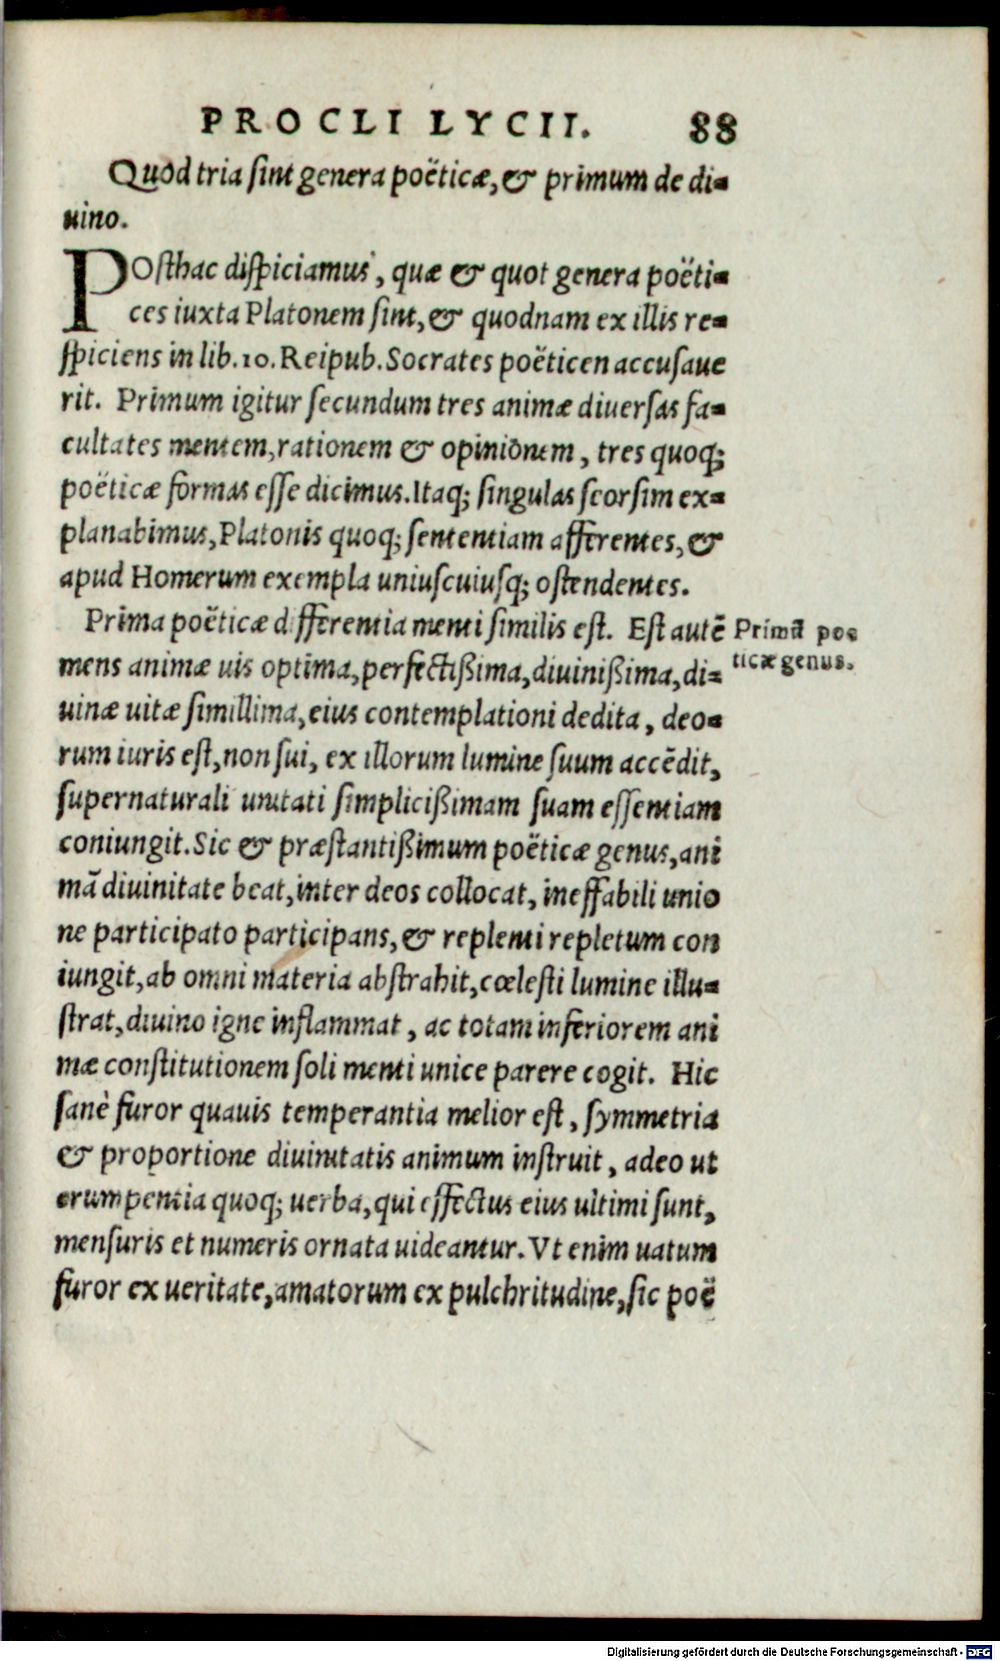 PROCLI LYCII. 88
Quòd tria sint genera poëticæ, & primum de di-
uino.
POsthac dispiciamus, quæ & quot genera poëti-
ces iuxta Platonem sint, & quodnam ex illis re-
spiciens in lib. 10. Reipub. Socrates poëticen accusaue
rit. Primum igitur secundum tres animæ diuersas fa-
cultates mentem, rationem & opinionem, tres quoq;
poëticæ formas esse dicimus. Itaq; singulas scorsim ex-
planabimus, Platonis quoq; sententiam afferentes, &
apud Homerum exempla uniuscuiusq; ostendentes.
Prima poëticæ differentia menti similis est. Est autē
Primū poe
ticæ genus.
mens animæ uis optima, perfectißima, diuinißima, di-
uinæ uitæ simillima, eius contemplationi dedita, deo-
rum iuris est, non sui, ex illorum lumine suum accēdit,
supernaturali unitati simplicißimam suam essentiam
coniungit. Sic & præstantißimum poëticæ genus, ani
mā diuinitate beat, inter deos collocat, ineffabili unio
ne participato participans, & replenti repletum con
iungit, ab omni materia abstrahit, cœlesti lumine illu-
strat, diuino igne inflammat, ac totam inferiorem ani
mæ constitutionem soli menti unice parere cogit. Hic
sanè furor quauis temperantia melior est, symmetria
& proportione diuinitatis animum instruit, adeo ut
erumpentia quoq; uerba, qui effectus eius ultimi sunt,
mensuris et numeris ornata uideantur. Vt enim uatum
furor ex ueritate, amatorum ex pulchritudine, sic poë
Digitalisierung gefördert durch die Deutsche Forschungsgemeinschaft - DFG